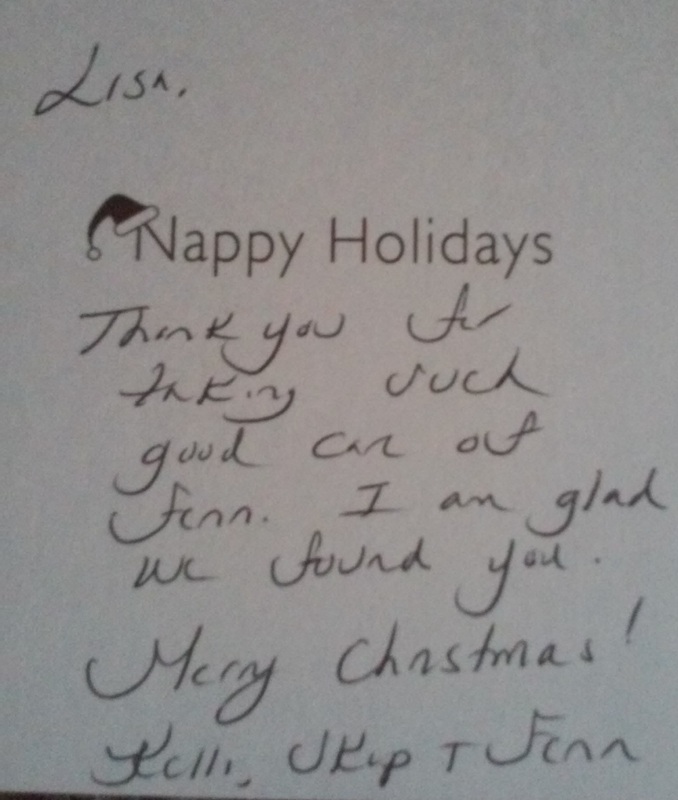 Lisa,
Nappy Holidays
Thank you for
taking such
good care of
Fenn. I am glad
we found you.
Merry Christmas!
Kelli, Skip + Fenn